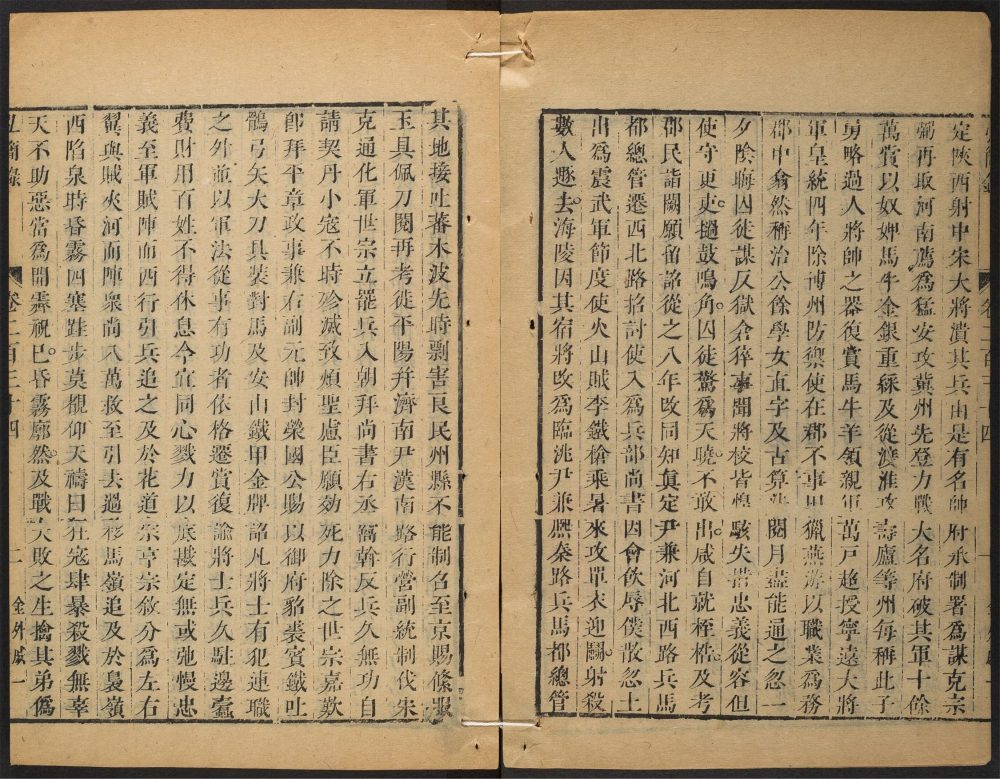 定陜西射中宋大將潰其兵由是有名帥府承制署為謀克宗
弼再取河南薦為猛安攻冀州先登力戰大名府破其軍十餘
萬賞以奴婢馬牛金銀重綵及從渡淮攻壽廬等州每稱此子
勇略過人將帥之器復賞馬牛羊領親軍萬戶超授寧遠大將
軍皇統四年除博州防禦使在郡不事畋獵燕游以職業為務
郡中翕然稱治公餘學女直字及古算法閱月盡能通之忽一
夕陰晦囚徒謀反獄倉猝事聞將校皆惶駭失措忠義從容但
使守更吏撾鼓鳴角囚徒驚為天曉不敢出咸自就桎梏及考
郡民詣闕願留詔從之八年改同知真定尹兼河北西路兵馬
都總管遷西北路招討使入為兵部尚書因會飲辱僕散忽土
出為震武軍節度使火山賊李鐵槍乘暑來攻單衣迎鬭射殺
數人遯去海陵因其宿將改為臨洮尹兼熙秦路兵馬都總管
卷二百三十四
其地接吐蕃木波先時剽害良民州縣不能制名至京賜條服
玉具佩刀閱再考徙平陽并濟南尹漢南路行營副統制伐宋
克通化軍世宗立罷兵入朝拜尚書右丞窩斡反兵久無功自
請契丹小寇不時殄滅致煩聖慮臣願効死力除之世宗嘉歎
卽拜平章政事兼右副元帥封榮國公賜以御府貂裘賓鐵吐
鶻弓矢大刀具裝對馬及安山鐵甲金牌詔凡將士有犯連職
之外並以軍法從事有功者依格遷賞復諭將士兵久駐邊蠹
費財用百姓不得休息今宜同心戮力以底戡定無或弛慢忠
義至軍賊陣而西行引兵追之及於花道宗亨宗敘分為左右
翼與賊夾河而陣衆尚八萬救至引去過移馬嶺追及於裊嶺
西陷泉時昏霧四塞跬步莫覩仰天禱曰狂寇肆暴殺戮無辜
天不助惡當為開霽祝已昏霧廓然及戰大敗之生擒其弟僞
弘簡錄 卷二百三十四 二 金外戚一